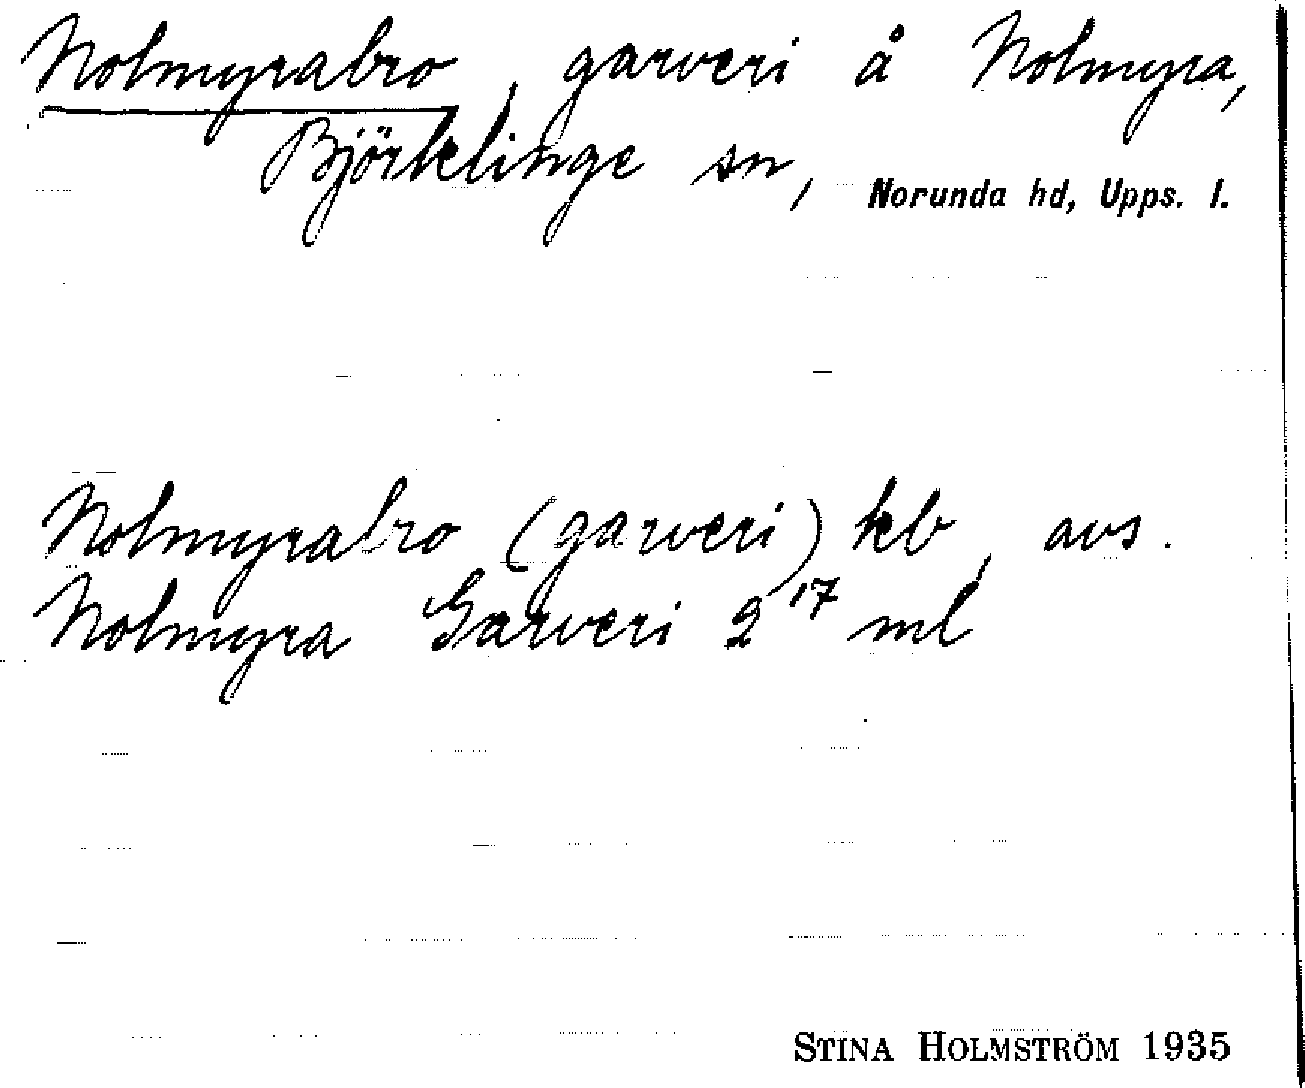 Nolmyrabro, garveri å Nolmyra,
Björklinge sn, Norunda hd, Upps. l.
Nolmyrabro (garveri) kb, avs.
Nolmyra Garveri 2¹⁷ ml
STINA HOLMSTRÖM 1935